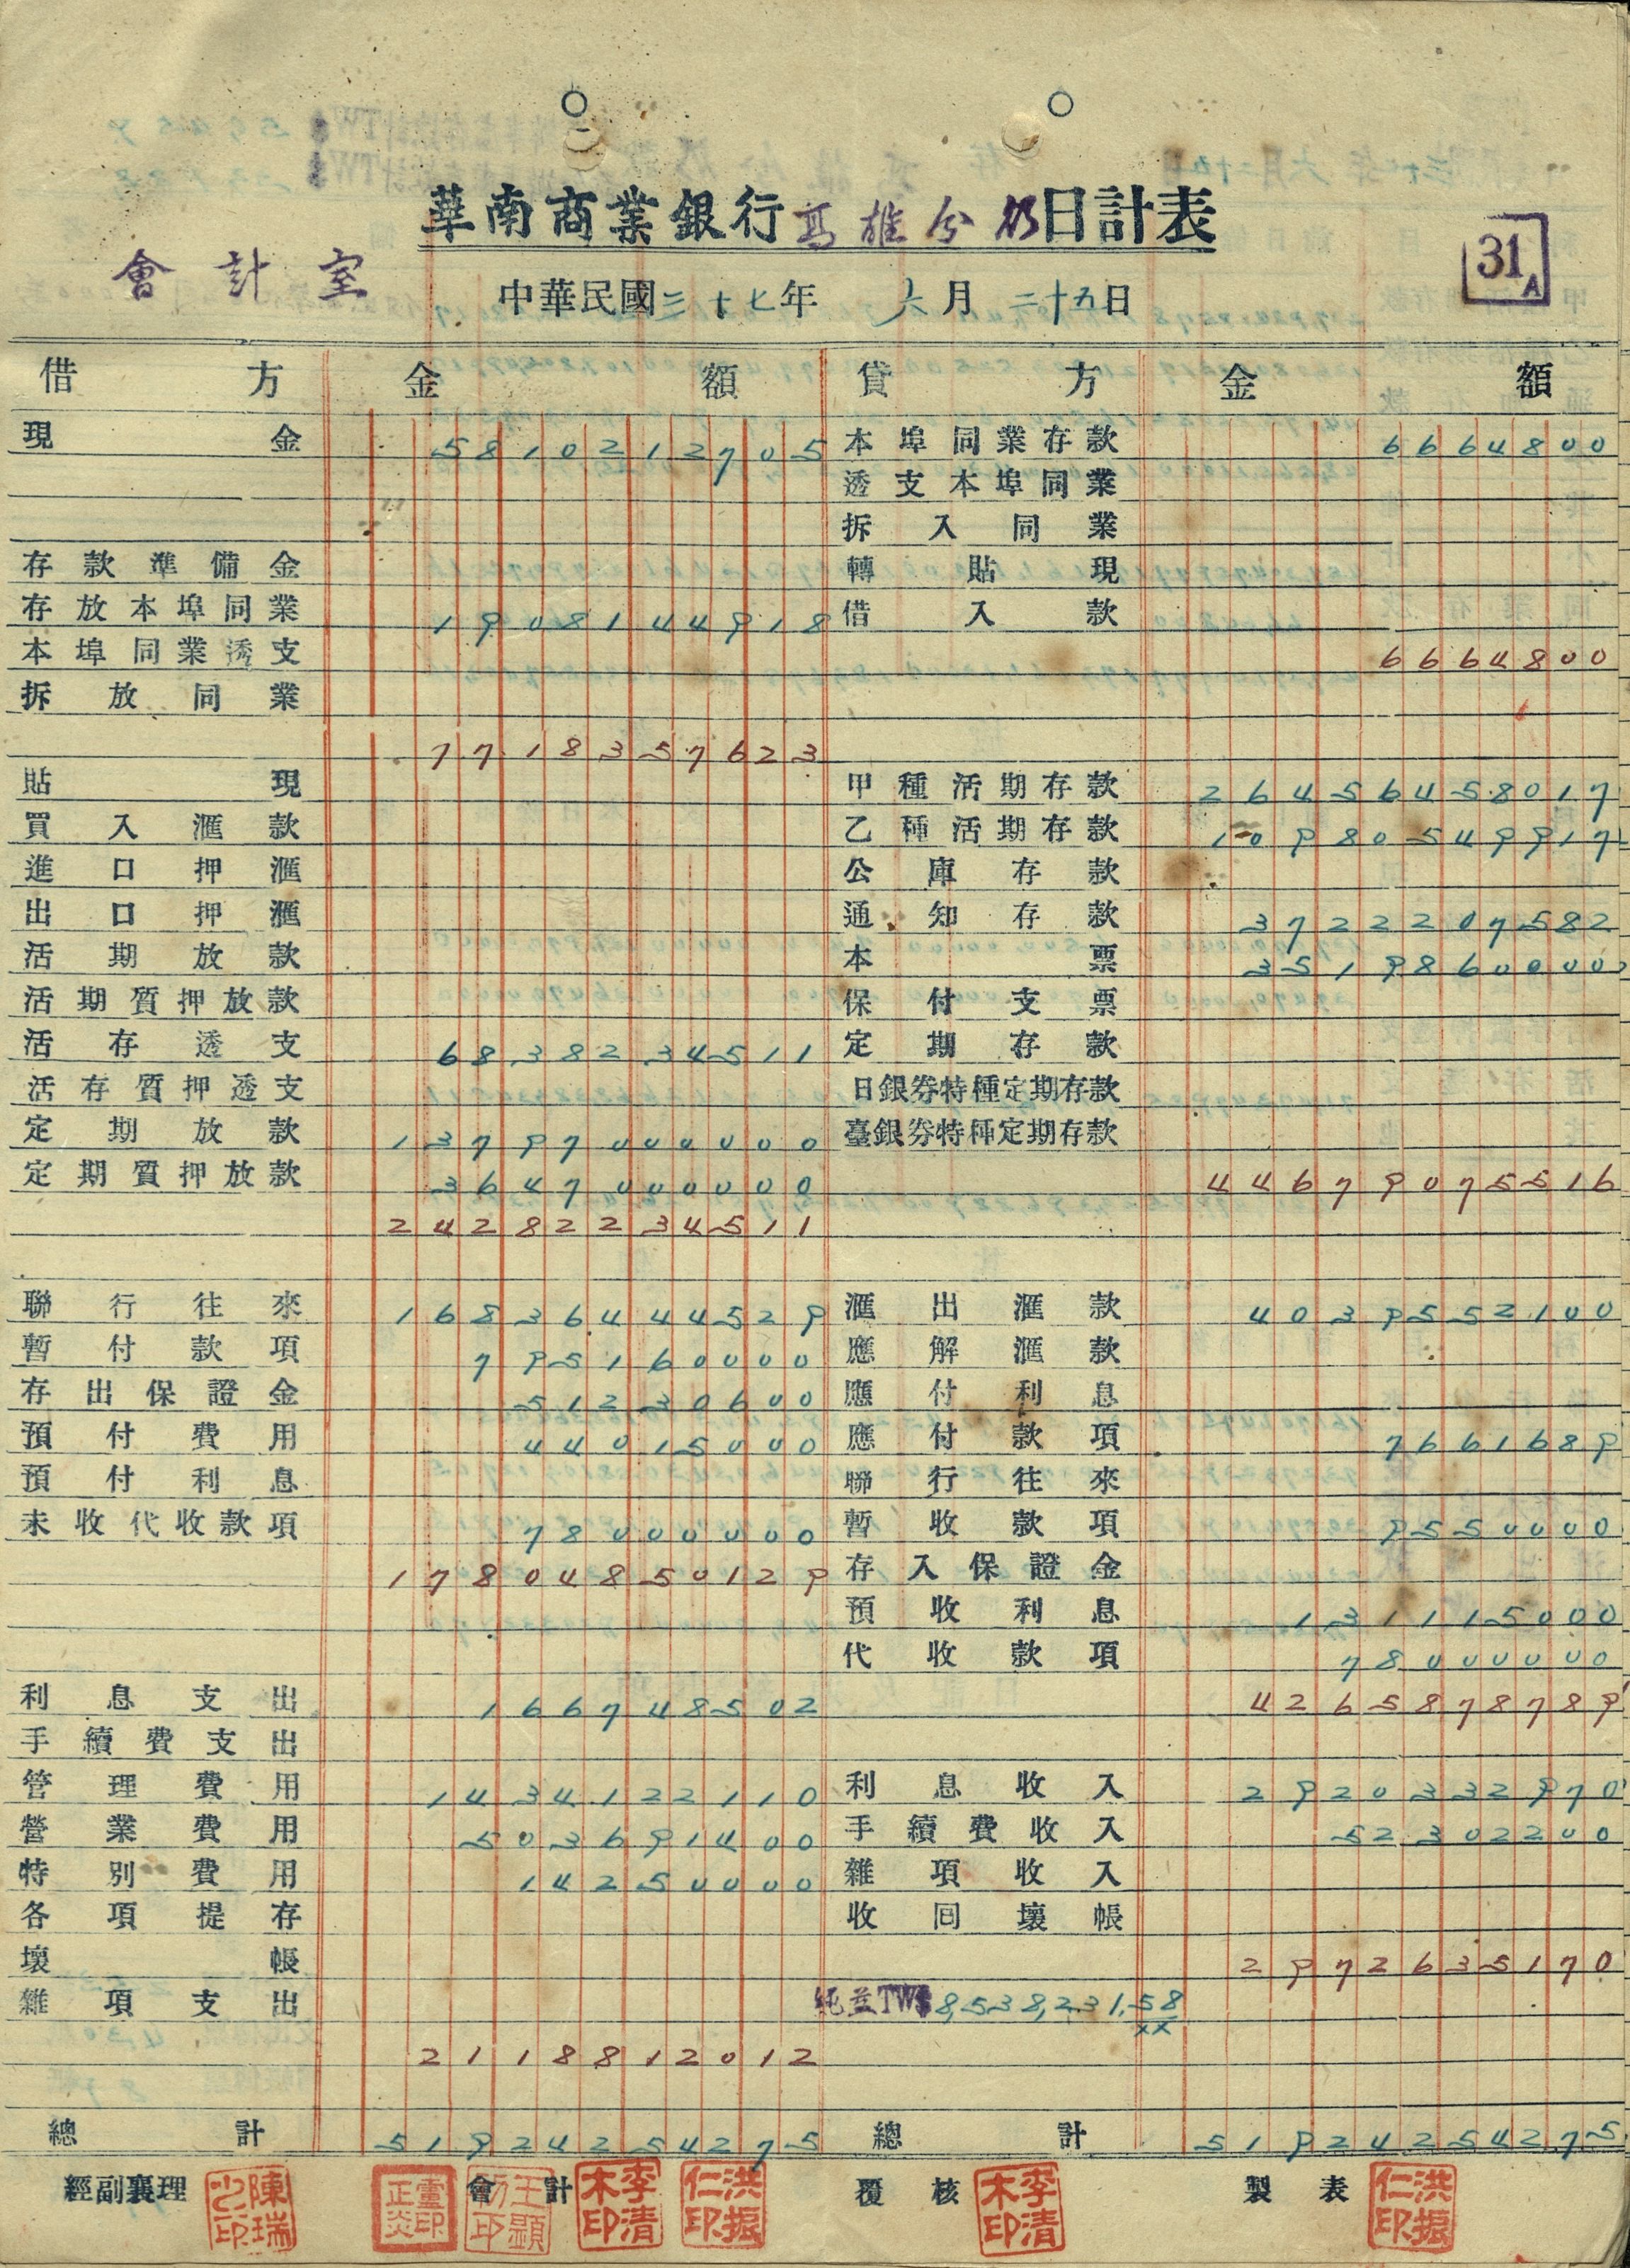 華南商業銀行高雄分行日計表
31A
會計室
中華民國三十七年 六月 二十五日
借方 金額 貸方 金額
現金 5810212705 本埠同業存款 6664800
透支本埠同業
拆入同業
存款準備金 轉貼現
存放本埠同業 1908144918 借入款
本埠同業透支 6664800
拆放同業
7718357623
貼現 甲種活期存款 26456458017
買入滙款 乙種活期存款 10980549917
進口押滙 公庫存款
出口押滙 通知存款 3722207582
活期放款 本票 3519860000
活期質押放款 保付支票
活存透支 6838234511 定期存款
活存質押透支 日銀券特種定期存款
定期放款 13797000000 臺銀券特種定期存款
定期質押放款 3647000000 44679075516
24282234511
聯行往來 16836444529 滙出滙款 4039552100
暫付款項 795160000 應解滙款
存出保證金 51230600 應付利息
預付費用 44015000 應付款項 7661689
預付利息 聯行往來
未收代收款項 78000000 暫收款項 9550000
17804850129 存入保證金
預收利息 131115000
代收款項 78000000
利息支出 166748502 4265878789
手續費支出
管理費用 1434122110 利息收入 2920332970
營業費用 503691400 手續費收入 52302200
特別費用 14250000 雜項收入
各項提存 收回壞帳
壞帳 2972635170
雜項支出 純益TW$ 8,538,231.58
2118812012
總計 51924254275 總計 51924254275
經副襄理 會計 覆核 製表
李清木印 洪振仁印 李清木印 洪振仁印